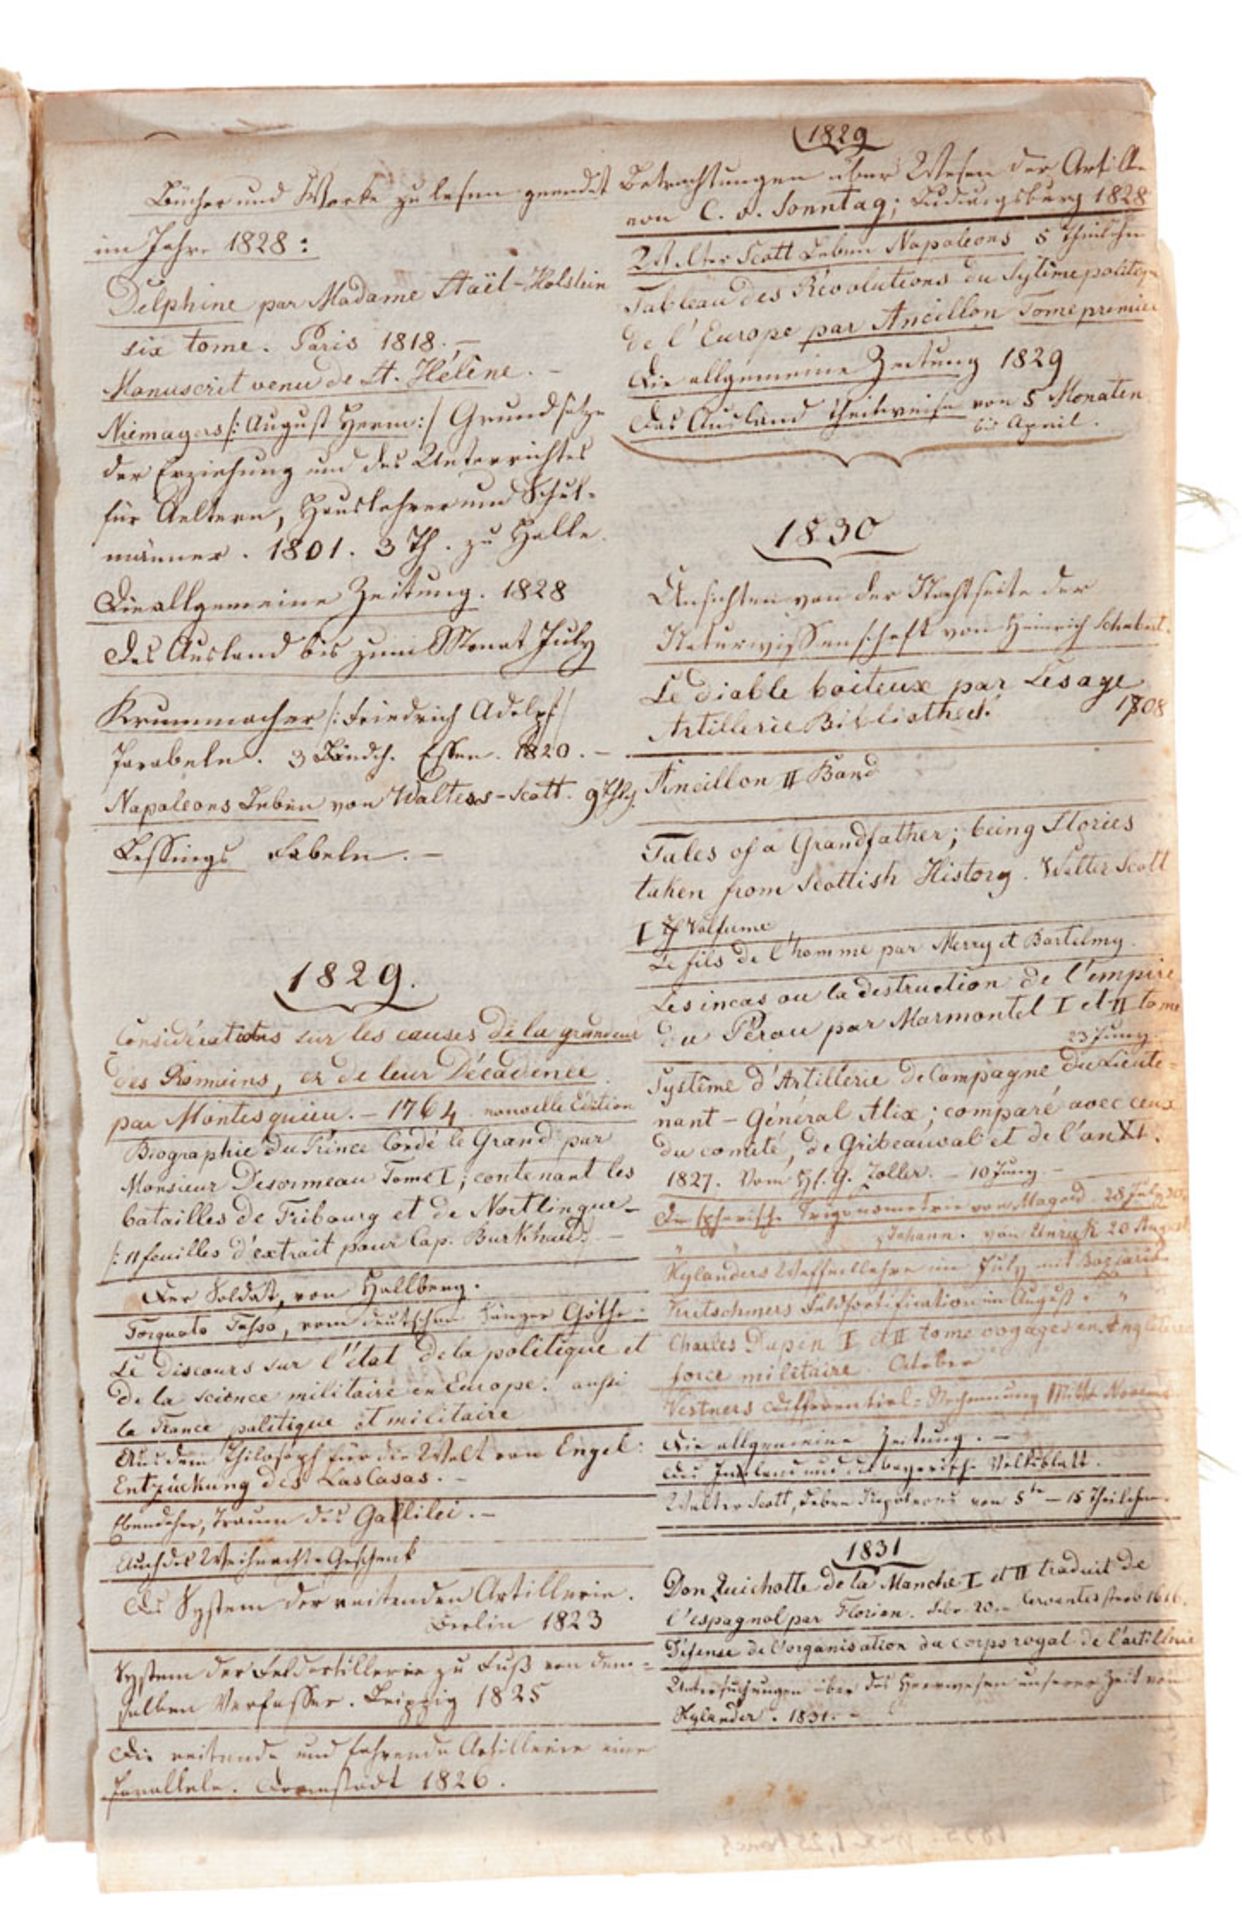 Bücher und Werke zu lesen geendet
im Jahre 1828 :
Delphine par Madame Staël-Holstein
six tome. Paris 1818. —
Manuscrit venu de St. Hélène. —
Niemayers /: August Herm: / Grundsätze
der Erziehung und des Unterrichtes
für Aeltern, Hauslehrer und Schul-
männer. 1801. 3 Th. zu Halle.
Die allgemeine Zeitung. 1828
Das Ausland bis zum Monat July
Krummacher /: Friedrich Adolph /
Parabeln. 3 Bändch. Essen. 1820. —
Napoleons Leben von Walter-Scott. 9 Thlg.
Lessings Fabeln. —
1829.
Considérations sur les causes de la grandeur
des Romains, et de leur Décadence
par Montesquieu. — 1764. nouvelle Edition
Biographie du Prince Condé le Grand par
Monsieur Desormeau Tome I; contenant les
batailles de Fribourg et de Nortlingue —
/: 11 feuilles d'extrait pour Cap. Burkhard. —
Der Soldat, von Hallberg.
Torquato Tasso, vom deutschen Sänger Göthe.
Le Discours sur l'état de la politique et
de la science militaire en Europe. aussi
la France politique et militaire
Aus dem Philosoph für die Welt von Engel:
Entzückung des LasCasas. —
Ebendaher, Traum des Gallilei. —
Auch das Weihnachts Geschenk
Das System der reitenden Artillerie.
Berlin 1823
System der Feldartillerie zu Fuß von dem-
selben Verfasser. Leipzig 1825
Die reitende und fahrende Artillerie eine
Paralele. Darmstadt 1826.
1829
Betrachtungen über Wesen der Artille
von C. v. Sonntag; Ludwigsburg 1828
Walter Scott Leben Napoleons 5 Theilchen
Tableau des Révolutions du Sytême politique
de l'Europe par Ancillon Tome premier
Die allgemeine Zeitung 1829
Das Ausland theilweise von 5 Monaten
bis April.
1830
Ansichten von der Nachtseite der
Naturwissenschaft von Heinrich Schubert.
Le diable boiteux par Lesage
1708
Artillerie Bibliothek.
Ancillon II Band
Tales of a Grandfather; being Stories
taken from Scottish History. Walter Scott
I Volfume
Le fils de l'homme par Merry et Bartelmy.
Les incas ou la destruction de l'empire
du Pérou par Marmontel I et II tome
23 Juny
Système d'Artillerie de Campagne du Lieute-
nant-Général Alix; comparé avec ceux
du comité, de Gribeauval et de l'an XI.
1827. Vom H. G. Zoller. — 10 Juny —
Die sphärische Trigonometrie von Magold. 28 July
Johann. von Unruh 20 August
Xylanders Waffenlehre im July mit
Kritschmers Feldfortification im August
Charles Dupin I et II tome voyages en Angleterre
force militaire. October
Vestners Differential-Rechnung Mitte Novemb
Die allgemeine Zeitung. —
Das Inland und das bayerische Volksblatt.
Walter Scott, Leben Napoleons von 5te — 15 Theilchen
1831
Don Quichotte de la Manche I et II traduit de
l'espagnol par Florian. Febr. 20. Cervantes starb 1616.
Défense de l'organisation du corps royal de l'artillerie
Untersuchungen über das Heerwesen unserer Zeit von
Xylander. 1831. —